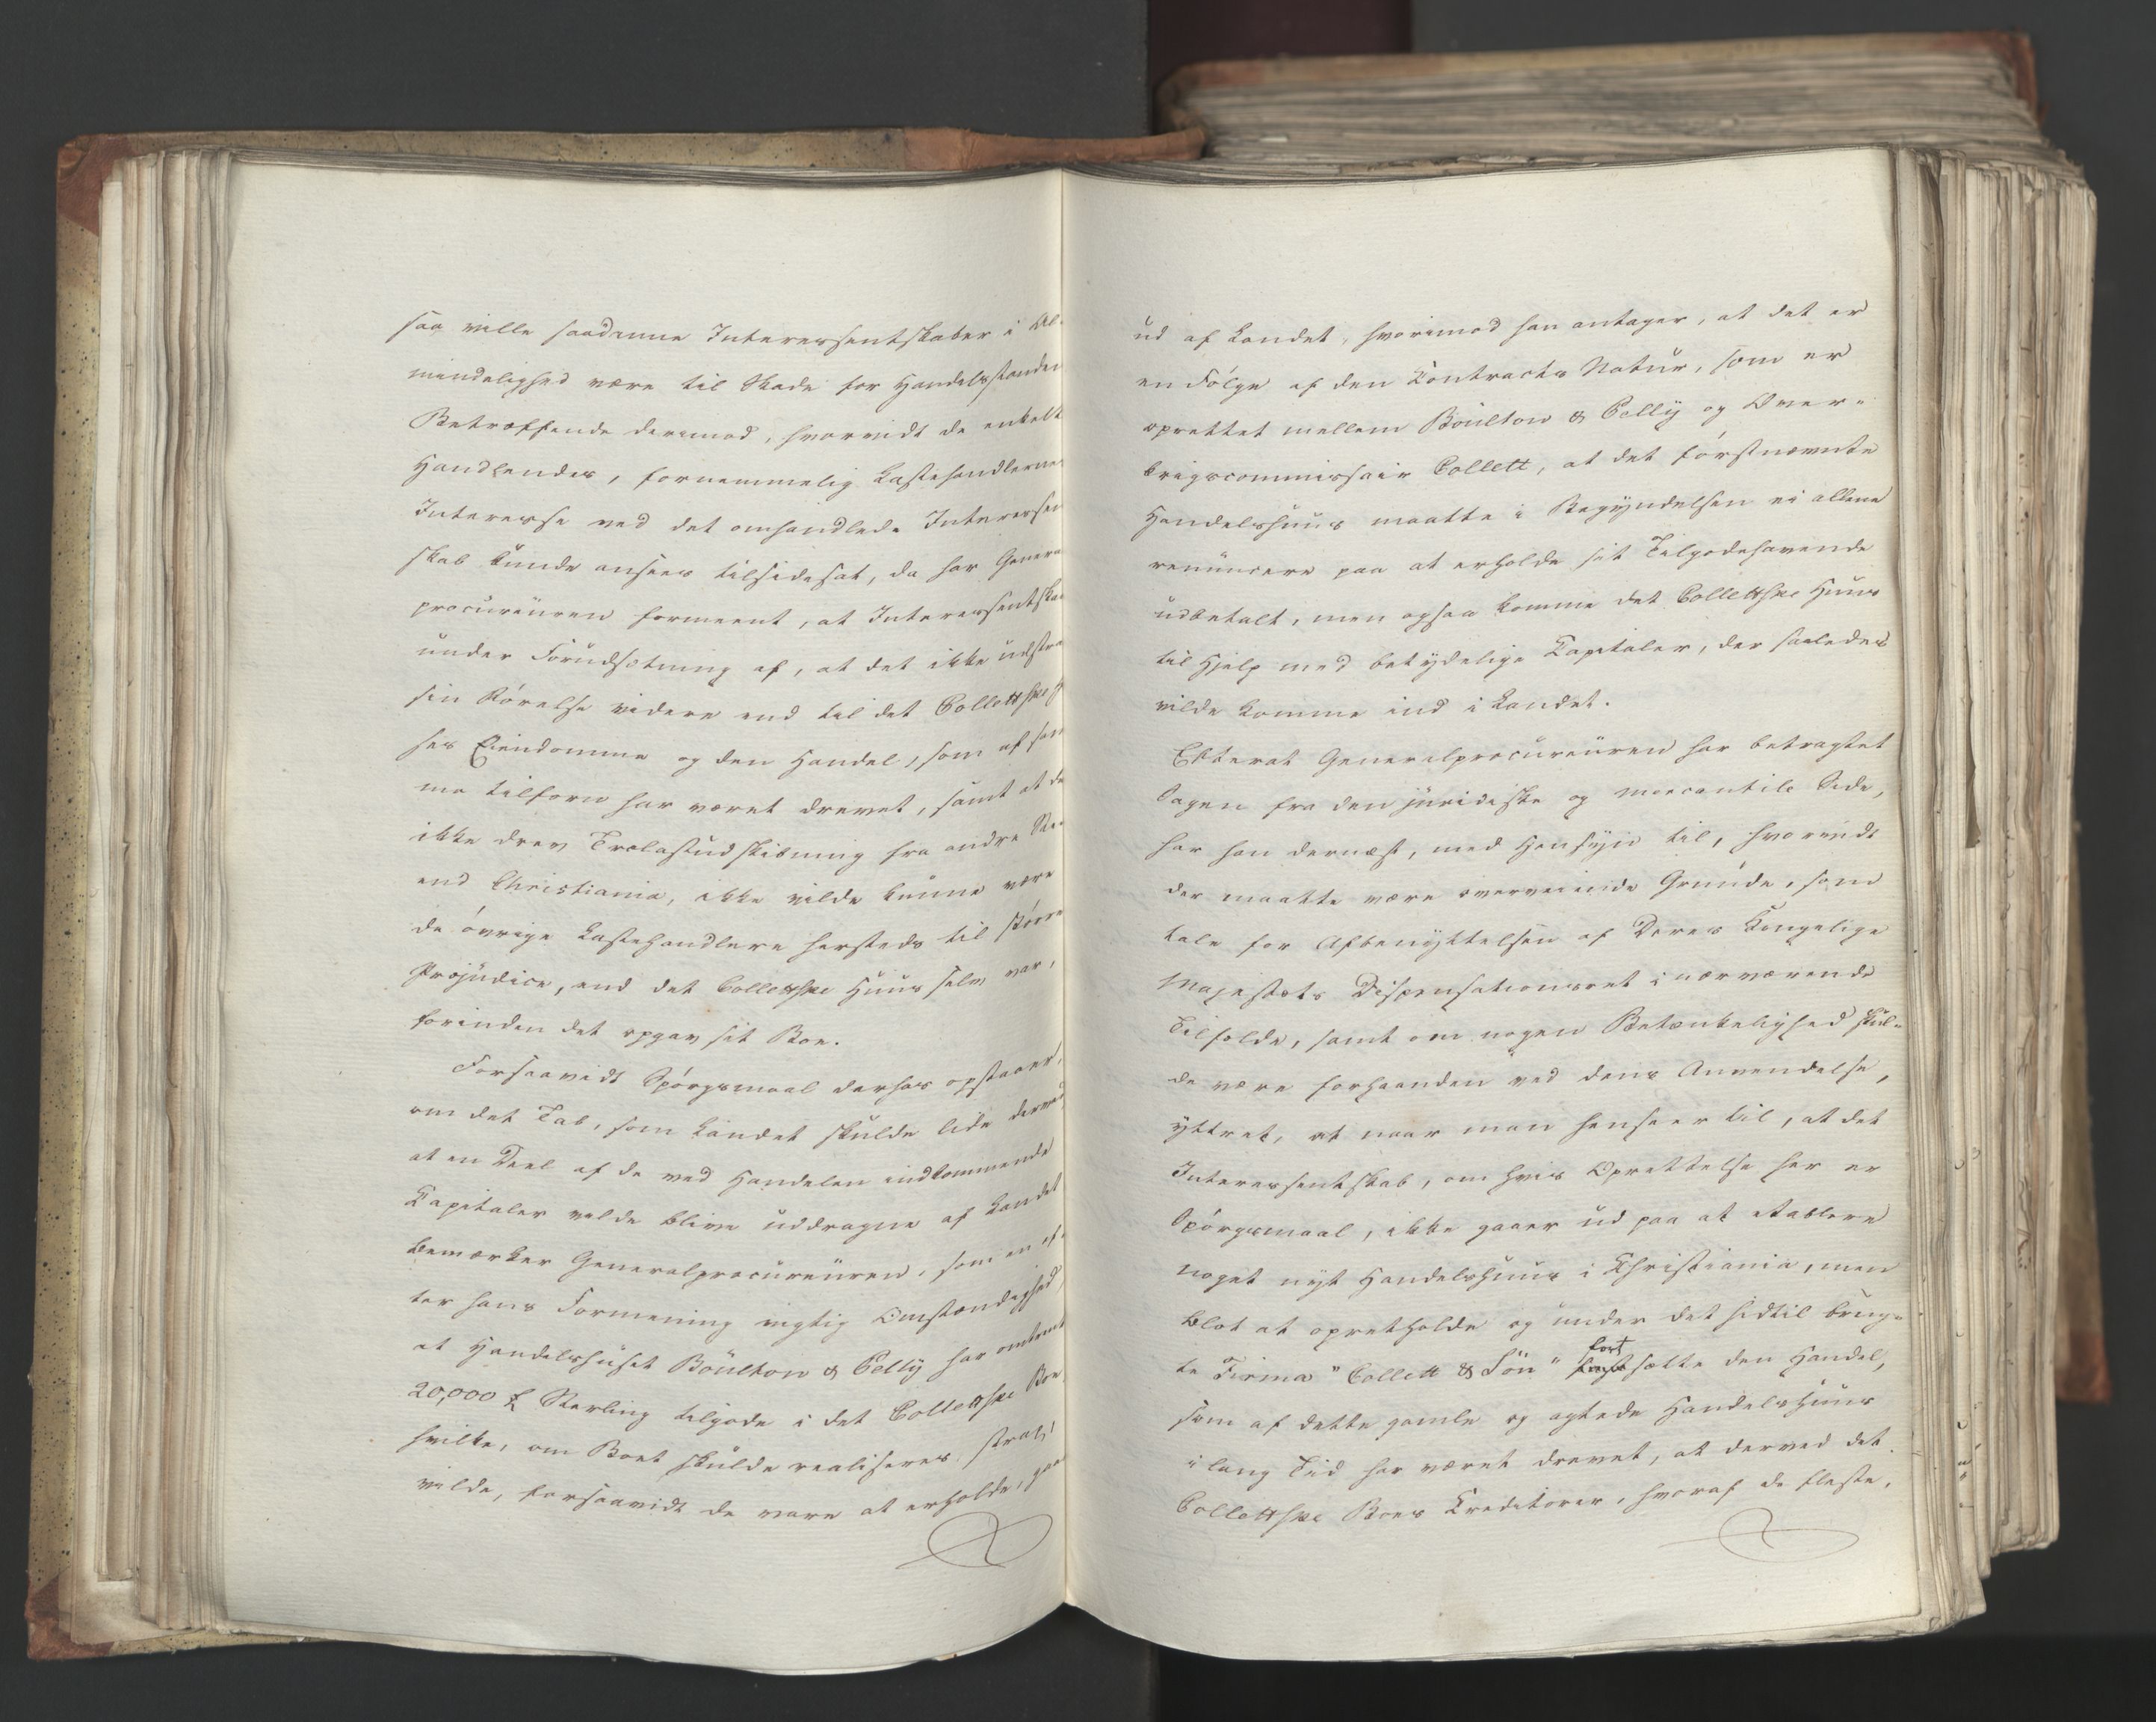 saa ville saadanne Interessentskaber i Al-
mindelighed være til Skade for Handelsstanden
Betræffende derimod, hvorvidt de enkelte
Handlendes, fornemmelig Lasthandlernes
Interesse ved det omhandlede Interessent
skab kunde ansees tilsidesat, da har General
procureuren formeent, at Interessentskab
under Forudsætning af, at det ikke udstra
sin Rörelse videre end til det Collettske H
ses Eiendomme og den Handel, som af sam
me tilforn har været drevet, samt at de
ikke drev Trælastudskibning fra andre Ste-
end Christiania, ikke vilde kunne være
de övrige Lasthandlere hersteds til större
Præjudice, end det Collettske Huus selv var,
forinden det opgav sit Boe.
Forsaavidt Spörgsmaal derhos opstaaer,
om det Tab, som Landet skulde lide derved
at en Deel af de ved Handelen indkommende
Capitaler vilde blive uddragne af Landet
bemærker Generalprocureuren, som en ef-
ter hans Formening vigtig Omstændighed,
at Handelshuset Boulton & Pelly har omtrent
20,000 £ Sterling tilgode i det Collettske Boe,
hvilke, om Boet skulde realiseres strax,
vilde, forsaavidt de vare at erholde, gaae
ud af Landet, hvorimod han antager, at det er
en Fölge af den Contracts Natur, som er
oprettet mellem Boulton & Pelly og Over-
krigscommissair Collett, at det förstnævnte
Handelshuus maatte i Begyndelsen ei allene
renuncere paa at erholde sit Tilgodehavende
udbetalt, men ogsaa komme det Collettske Huus
til Hjelp med betydelige Capitaler, der saaledes
vilde komme ind i Landet.
Efterat Generalprocureuren har betragtet
Sagen fra den juridiske og mercantile Side,
har han dernæst, med Hensyn til, hvorvidt
der maatte være overveiende Grunde, som
tale for Afbenyttelsen af Deres Kongelige
Majestæts Dispensationsret i nærværende
Tilfælde, samt om nogen Betænkelighed skul-
de være forhaanden ved dens Anvendelse,
yttret, at naar man henseer til, at det
Interessentskab, om hvis Oprettelse her er
Spörgsmaal, ikke gaaer ud paa at etablere
noget nyt Handelshuus i Christiania, men
blot at opretholde og under det hidtil brug-
te Firma "Collett & Sön" fortsætte den Handel,
som af dette gamle og agtede Handelshuus
i lang Tiid har været drevet, at derved det
Collettske Boes Creditorer, hvoraf de fleste,